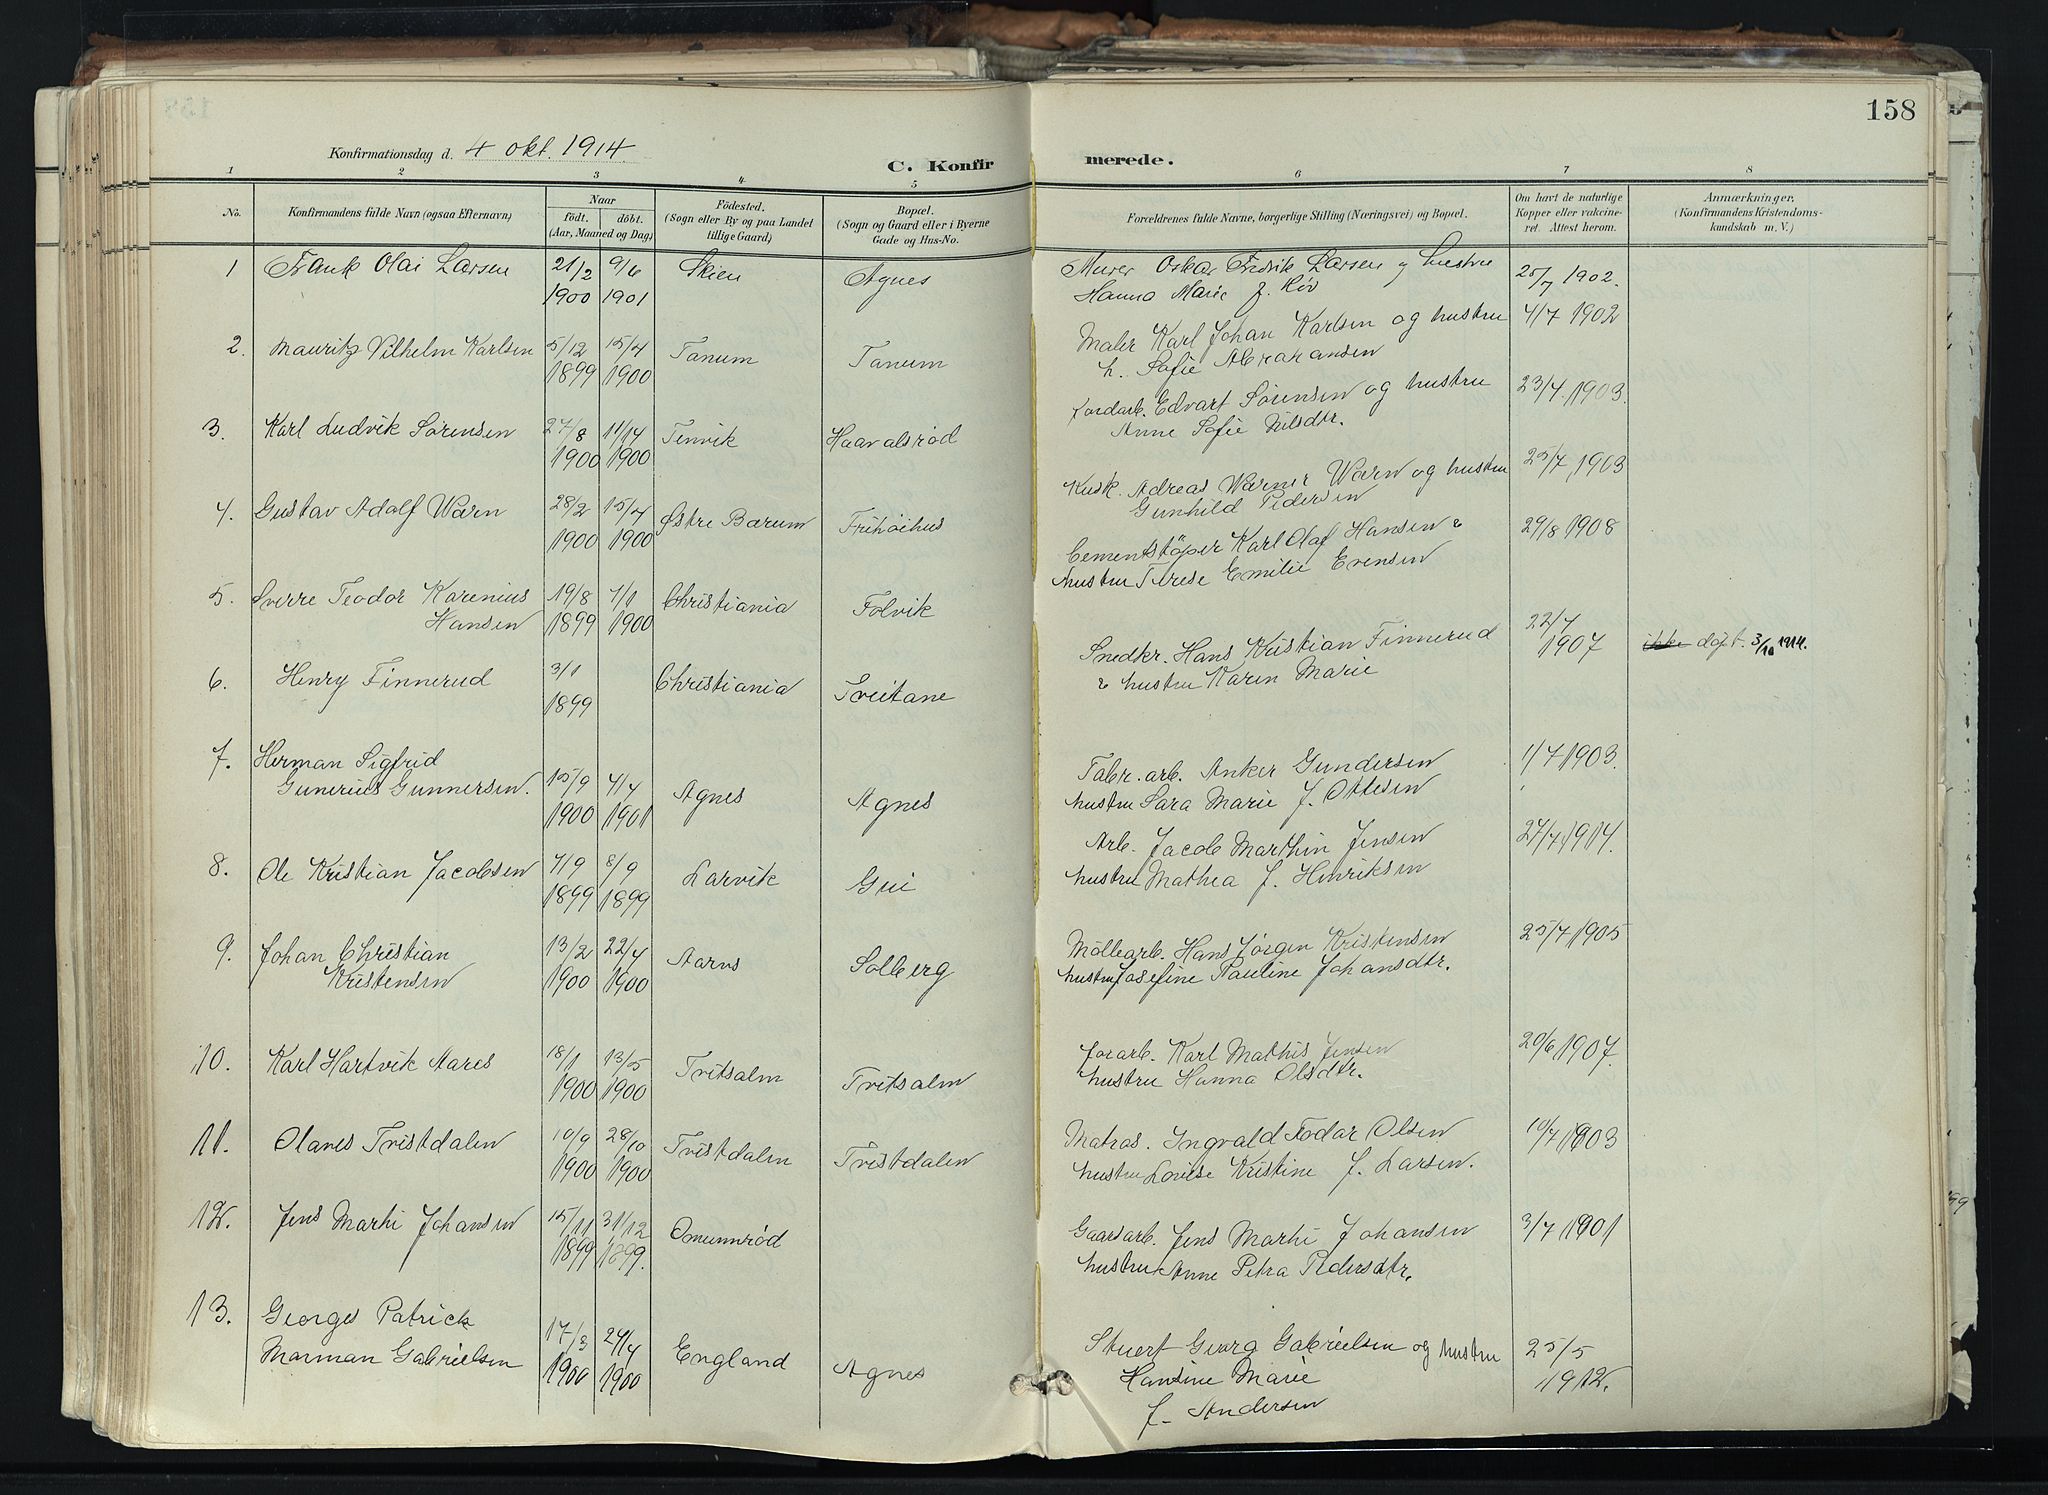 158
Konfirmationsdag d. 4 okt. 1914.
C. Konfirmerede.
1 2 3 4 5 6 7 8
No.
Konfirmandens fulde Navn (ogsaa Efternavn)
Naar
födt. döbt.
(Aar, Maaned og Dag)
Födested.
(Sogn eller By og paa Landet
tillige Gaard)
Bopæl.
(Sogn og Gaard eller i Byerne
Gade og Hus-No.
Forældrenes fulde Navne, borgerlige Stilling (Næringsvei) og Bopæl.
Om havt de naturlige
Kopper eller vakcine-
ret. Attest herom.
Anmærkninger.
(Konfirmandens Kristendoms-
kundskab m. V.)
1 Frank Olai Larsen 21/2 9/6 Skien Agnes Murer Oskar Fredrik Larsen og hustru
1900 1901 Hanna Marie f. 25/7 1902.
2. Mauritz Vilhelm Karlsen 5/12 15/4 Tanum Tanum Maler Karl Johan Karlsen og hustru 4/7 1902
1899 1900 Sofie Abrahansen
3. Karl Ludvik Sørensen 27/8 11/14 Tenvik Haavalsrød Jordarb. Edvart Sørensen og hustru 23/7. 1903.
1900 1900 Anne Sofie Nilsdtr.
4. Gustav Adolf Warn 28/2 15/4 Østre Bærum Frihøihus Kusk. Adreas Warner Warn og hustru 25/7 1903
1900 1900 Gunhild Pedersen
5. Sverre Teodor Karenius 19/8 1/1 Christiania Folvik Cementstöper Karl Olaf Hansen & 29/8 1908
Hansen 1899 1900 hustru Terese Emilie Evensen
6. Henry Finnerud 3/1 Christiania Tveitane Snedkr. Hans Kristian Finnerud 22/7
1899 & hustru Karen Marie 1907 ikke døpt. 3/10 1914.
7. Herman Sigfrid
Gunerius Gunnersen. 15/9 4/4 Agnes Agnes Fabr. arb. Anker Gundersen 1/7 1903.
1900 1901 hustru Sara Marie f. Ottesen
8. Ole Kristian Jacobsen 7/9 8/9 Larvik Gui Arb. Jacob Marthin Jensen 27/7 1914.
1899 1899 hustru Mathea f. Henriksen
9. Johan Christian 13/2 22/4 Aarns Solberg Möllearb. Hans Jørgen Kristensen 25/7 1905
Kristensen 1900 1900 hustru Josefine Pauline Johansdtr.
10. Karl Hartvik Aares 18/1 13/5 Tvitsalm Tvitsalm Jorarb. Karl Mathis Jensen 20/6 1907.
1900 1900 hustru Hanna Olsdtr.
11. Olaves Tristdalen 10/9 28/10 Tvistdalen Tvistdalen Matros. Ingvald Todar Olsen 10/7 1903
1900 1900 hustru Lovise Kristine f. Larsen.
12. Jens Marhi Johansen 15/11 31/12 Omunnrød Gaarsarb. Jens Marhi Johansen 3/7 1901
1899 1899. hustru Anne Petra Pedersdtr.
13. Georges Patrick
Marman Gabrielsen 17/3 24/4 England Agnes Stuert Georg Gabrielsen og hustru 25/5
1900 1900 Hansine Marie 1912.
f. Andersen